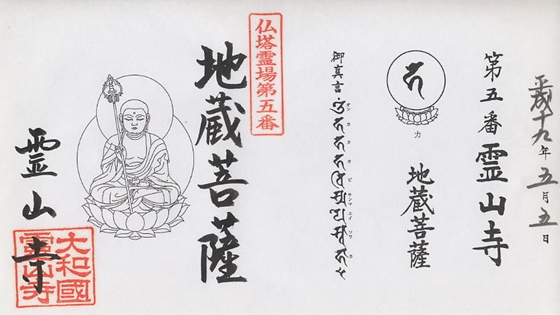 平成十九年五月五日
第五番 霊山寺
カ
地蔵菩薩
御真言
仏塔霊場第五番
地蔵菩薩
霊山寺
大和國
霊山寺